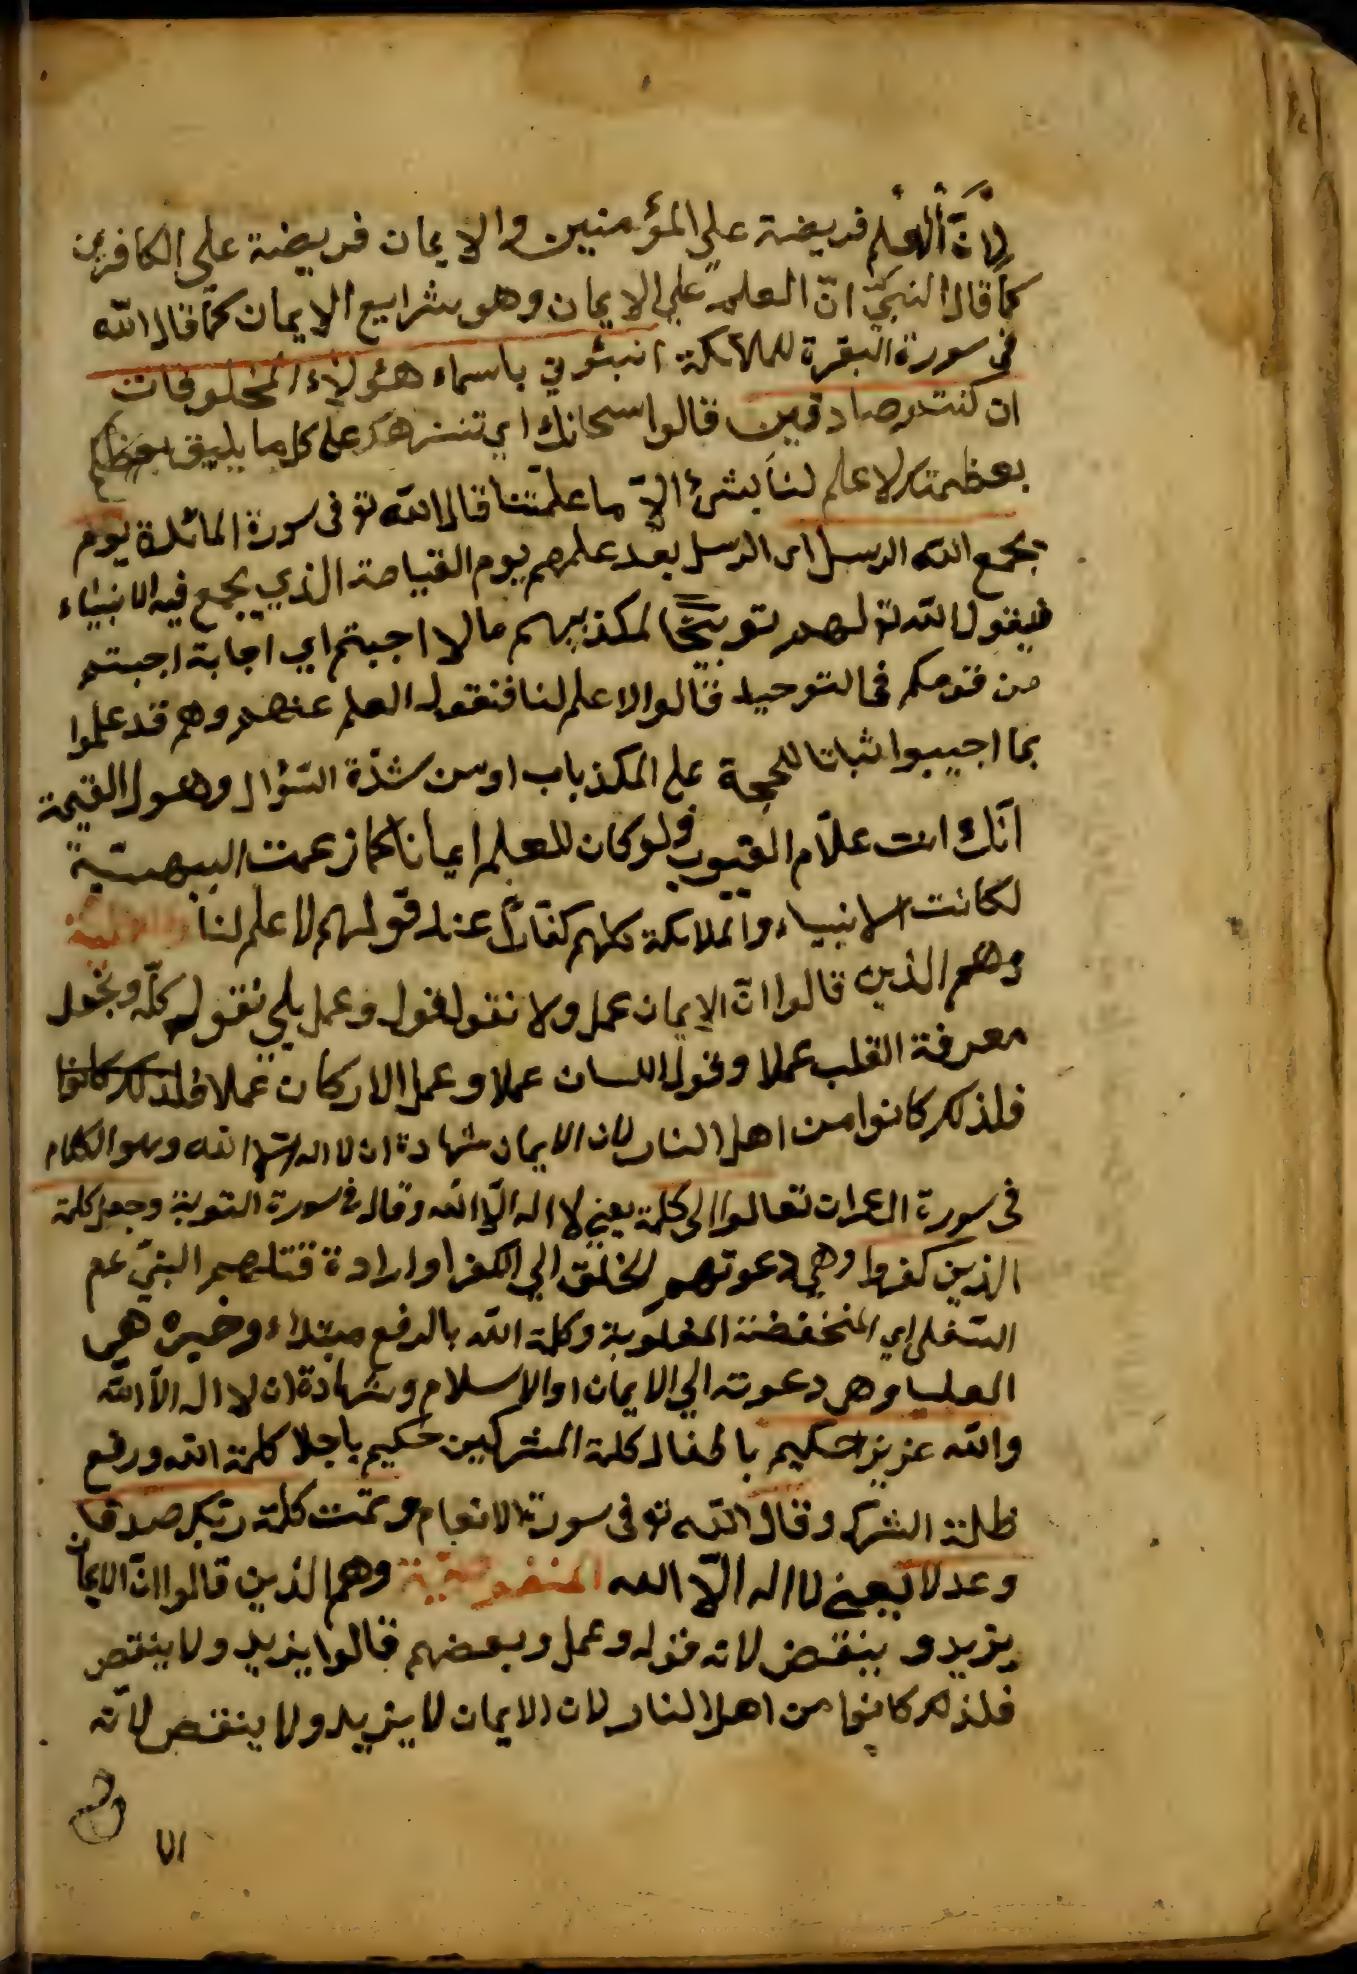 لِاَنَّ اَلْعِلم فريضة على المؤمنين والايمان فريضة على الكافرين
كما قال النبيّ انّ العلم على الايمان وهو شرايع الايمان كما قال الله
فى سورة البقرة للملائكة انبئوني باسماء هٰؤلاء المخلوقات
ان كنتم صادقين قالوا سبحانك اى تنزهك على كل ما يليق
بعظمتك لا علم لنا بشئ الّا ما علّمتنا قال الله تع فى سورة المائدة يوم
يجمع الله الرسل اى الرسل بعد علمهم يوم القيامة الذي يجمع فيه الانبياء
فيقول الله تع لهم توبيخًا لمكذبيهم مالا اجبتم اي اجابة اجبتم
من قومكم فى التوحيد قالوا لا علم لنا فنقول العلم عنهم وهم قد علموا
بما اجيبوا اثباتا للحجة على المكذباب او من شدّة السّؤال وهول القيمة
انّك انت علّام الغيوب ولو كان للعلم ايمانا كما زعمت البيهسيّة
لكانت الانبياء والملائكة كلهم كفّارًا عند قولهم لا علم لنا
وهم الذين قالوا انّ الايمان عمل ولا نقول قول وعمل بلي نقول كلّه ونجعل
معرفة القلب عملا وقول اللسان عملا وعمل الاركان عملا فلذلك كانوا
فلذلك كانوا من اهل النار لان الايمان شهادة ان لا اله الا الله وهو الكلام
فى سورة العمران تعالوا الى كلمة يعني لا اله الّا الله وقال فى سورة التوبة وجعل كلمة
الذين كفروا وهي دعوتهم الخلق الي الكفر او ارادة قتلهم النبيّ عم
السّفلى اي المنخفضة المغلوبة وكلمة الله بالرفع مبتداء وخبره هى
العليا وهى دعوته الي الايمان او الاسلام وشهادة ان لا اله الّا الله
والله عزيز حكيم باطفال كلمة المشركين حكيم باجلا كلمة الله ورفع
ظلمة الشرك وقال الله تع فى سورة الانعام وتمّت كلمة ربّك صدقا
وعدلا يعني لا اله الّا الله المنقوصيّة وهم الذين قالوا انّ الايمان
يزيد و ينقص لانه قول وعمل وبعضهم قالوا يزيد ولا ينقص
فلذلك كانوا من اهل النار لان الايمان لا يزيد ولا ينقص لانّه
٧١